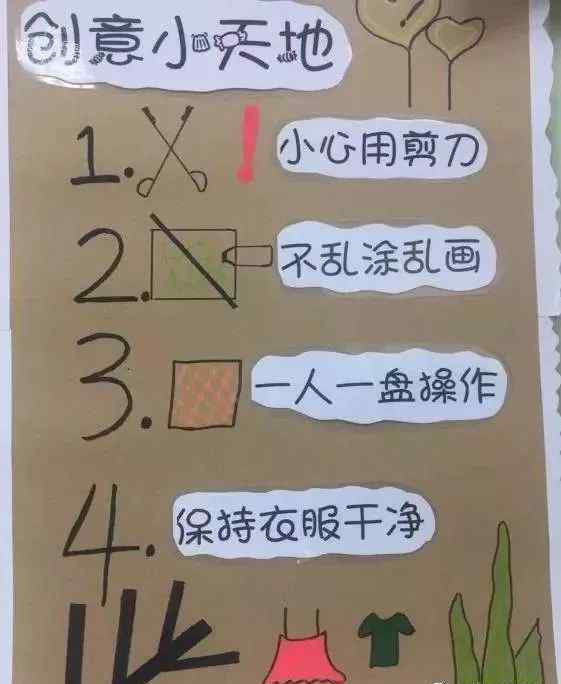 创意小天地
1. ! 小心用剪刀
2. 不乱涂乱画
3. 一人一盘操作
4. 保持衣服干净